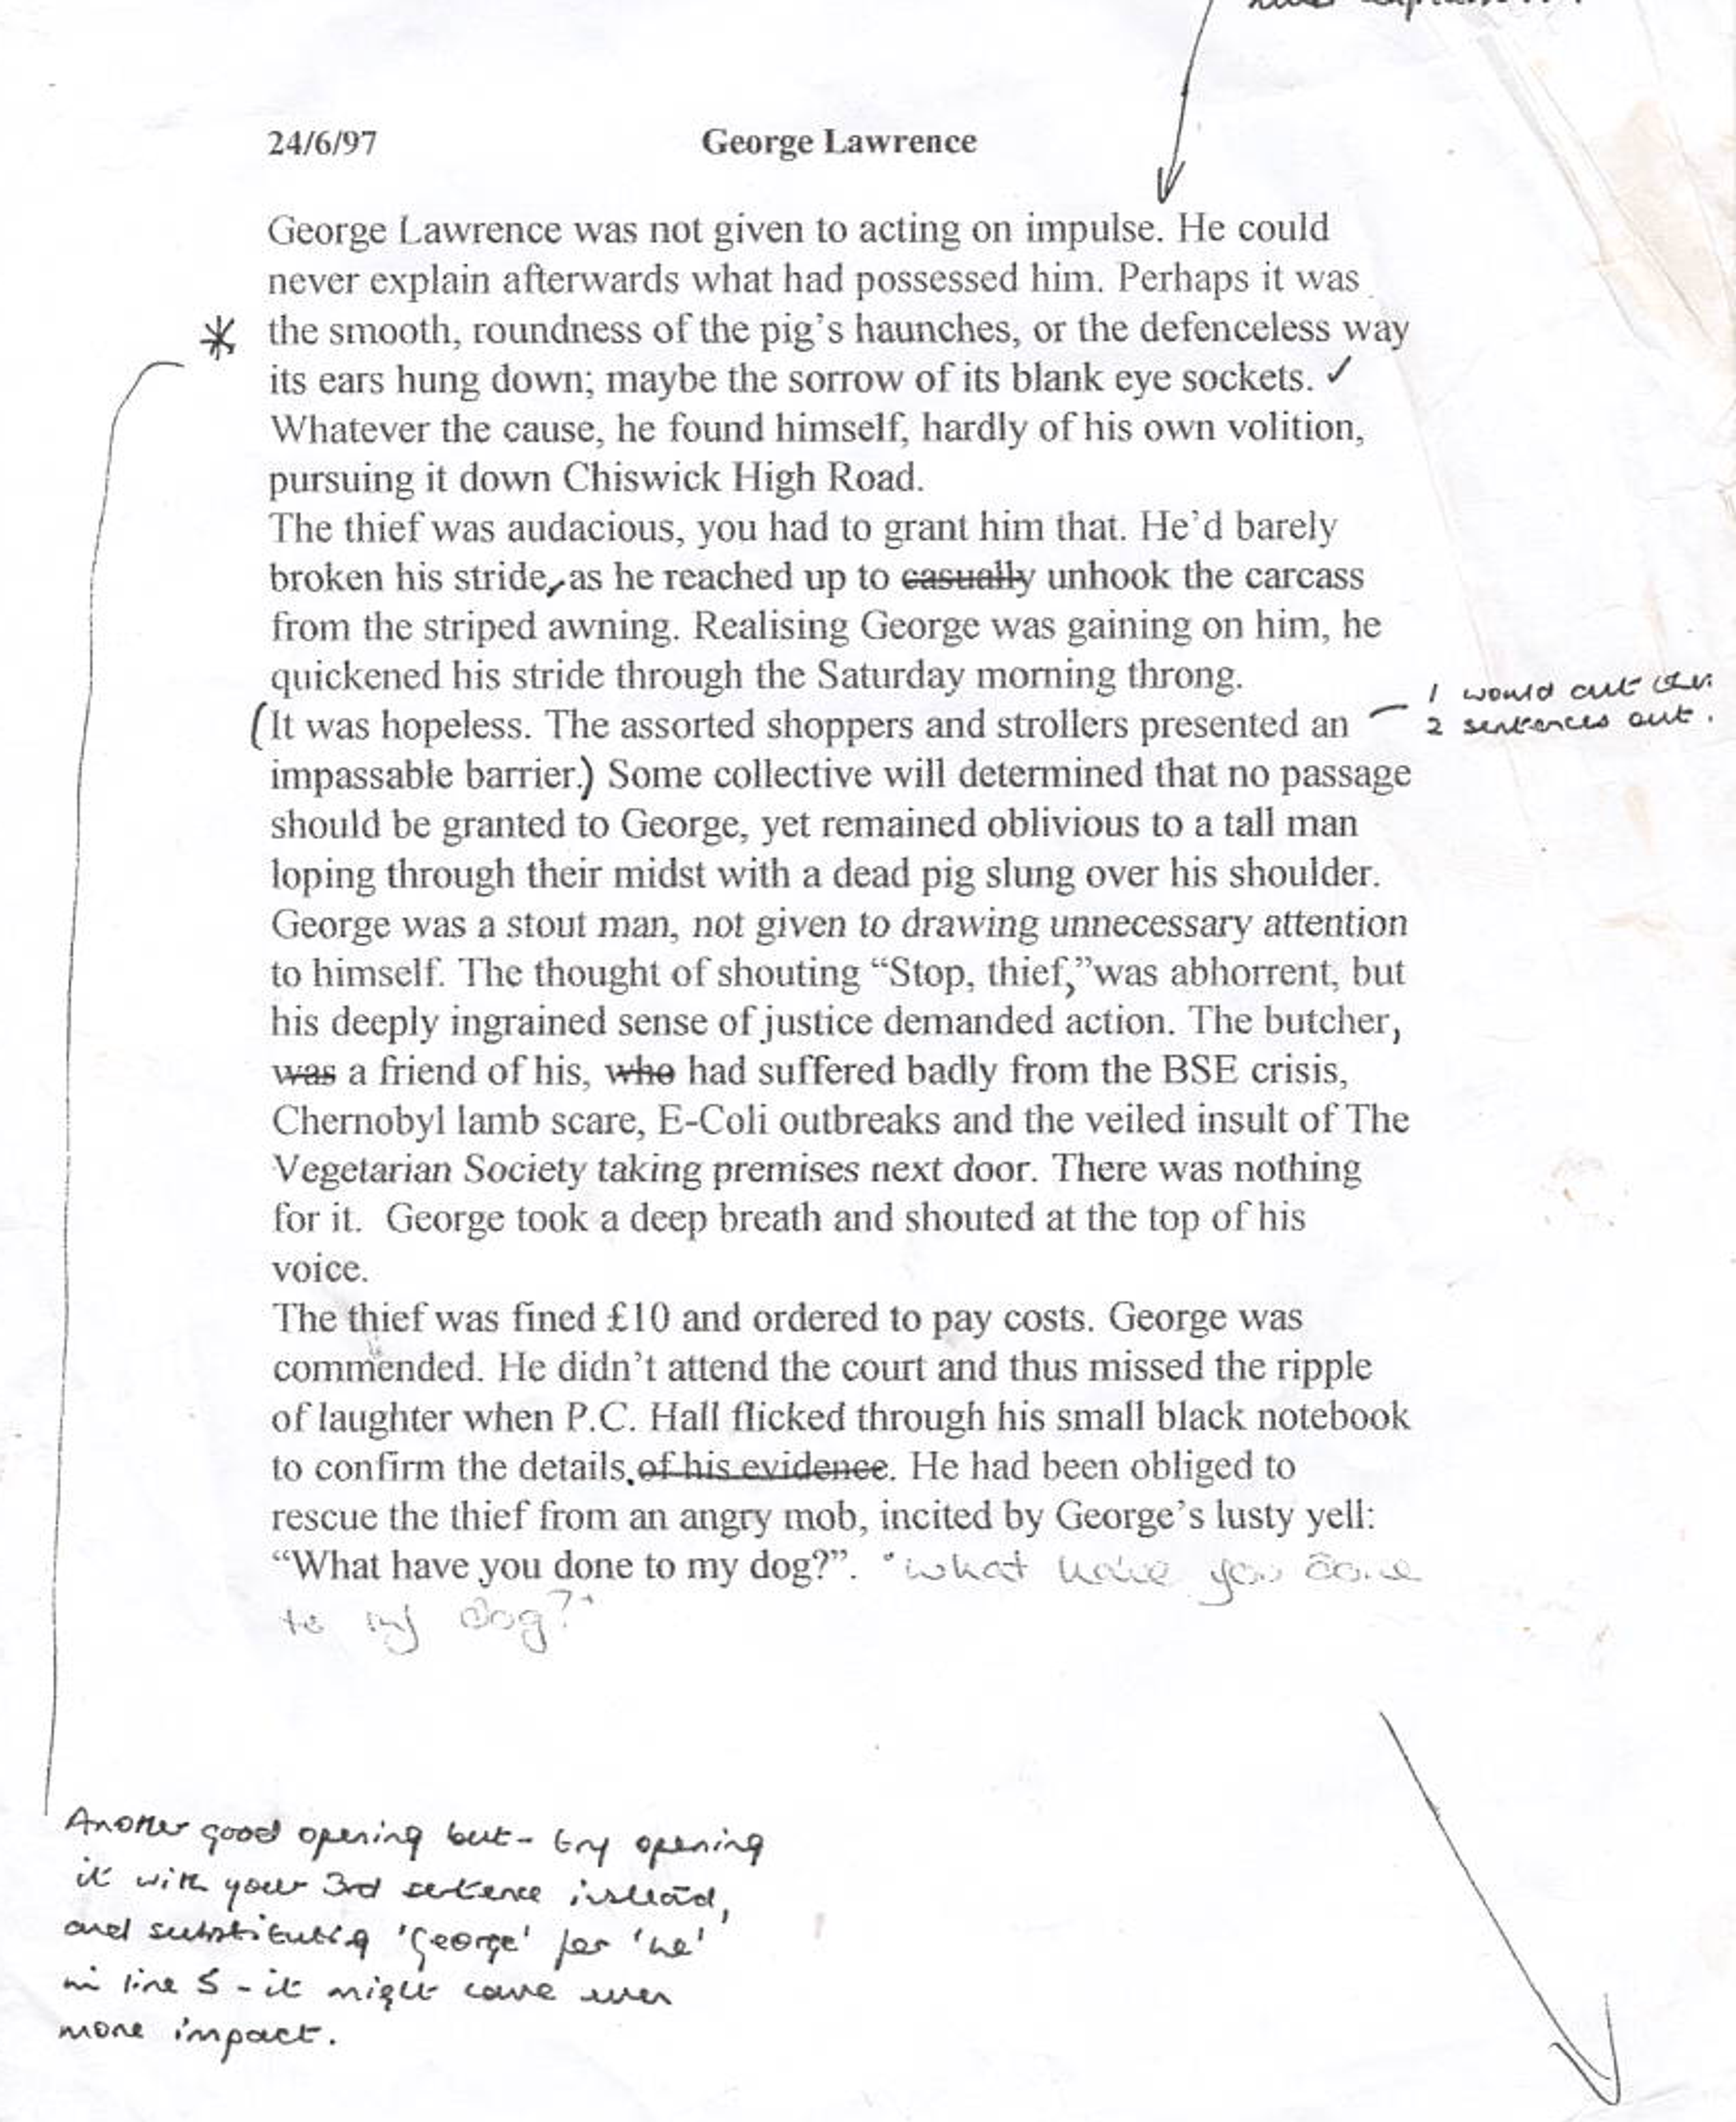 24/6/97 George Lawrence
George Lawrence was not given to acting on impulse. He could
never explain afterwards what had possessed him. Perhaps it was
the smooth, roundness of the pig's haunches, or the defenceless way
its ears hung down; maybe the sorrow of its blank eye sockets. ✓
Whatever the cause, he found himself, hardly of his own volition,
pursuing it down Chiswick High Road.
The thief was audacious, you had to grant him that. He'd barely
broken his stride, as he reached up to casually unhook the carcass
from the striped awning. Realising George was gaining on him, he
quickened his stride through the Saturday morning throng.
(It was hopeless. The assorted shoppers and strollers presented an
impassable barrier.) Some collective will determined that no passage
should be granted to George, yet remained oblivious to a tall man
loping through their midst with a dead pig slung over his shoulder.
George was a stout man, not given to drawing unnecessary attention
to himself. The thought of shouting “Stop, thief,”was abhorrent, but
his deeply ingrained sense of justice demanded action. The butcher,
was a friend of his, who had suffered badly from the BSE crisis,
Chernobyl lamb scare, E-Coli outbreaks and the veiled insult of The
Vegetarian Society taking premises next door. There was nothing
for it.  George took a deep breath and shouted at the top of his
voice.
The thief was fined £10 and ordered to pay costs. George was
commended. He didn't attend the court and thus missed the ripple
of laughter when P.C. Hall flicked through his small black notebook
to confirm the details. of his evidence. He had been obliged to
rescue the thief from an angry mob, incited by George's lusty yell:
“What have you done to my dog?”. "what have you done
to my dog?"
I would cut
2 sentences out.
*
Another good opening but - try opening
it with your 3rd sentence instead,
and substituting 'George' for 'he'
in line 5 - it might have even
more impact.